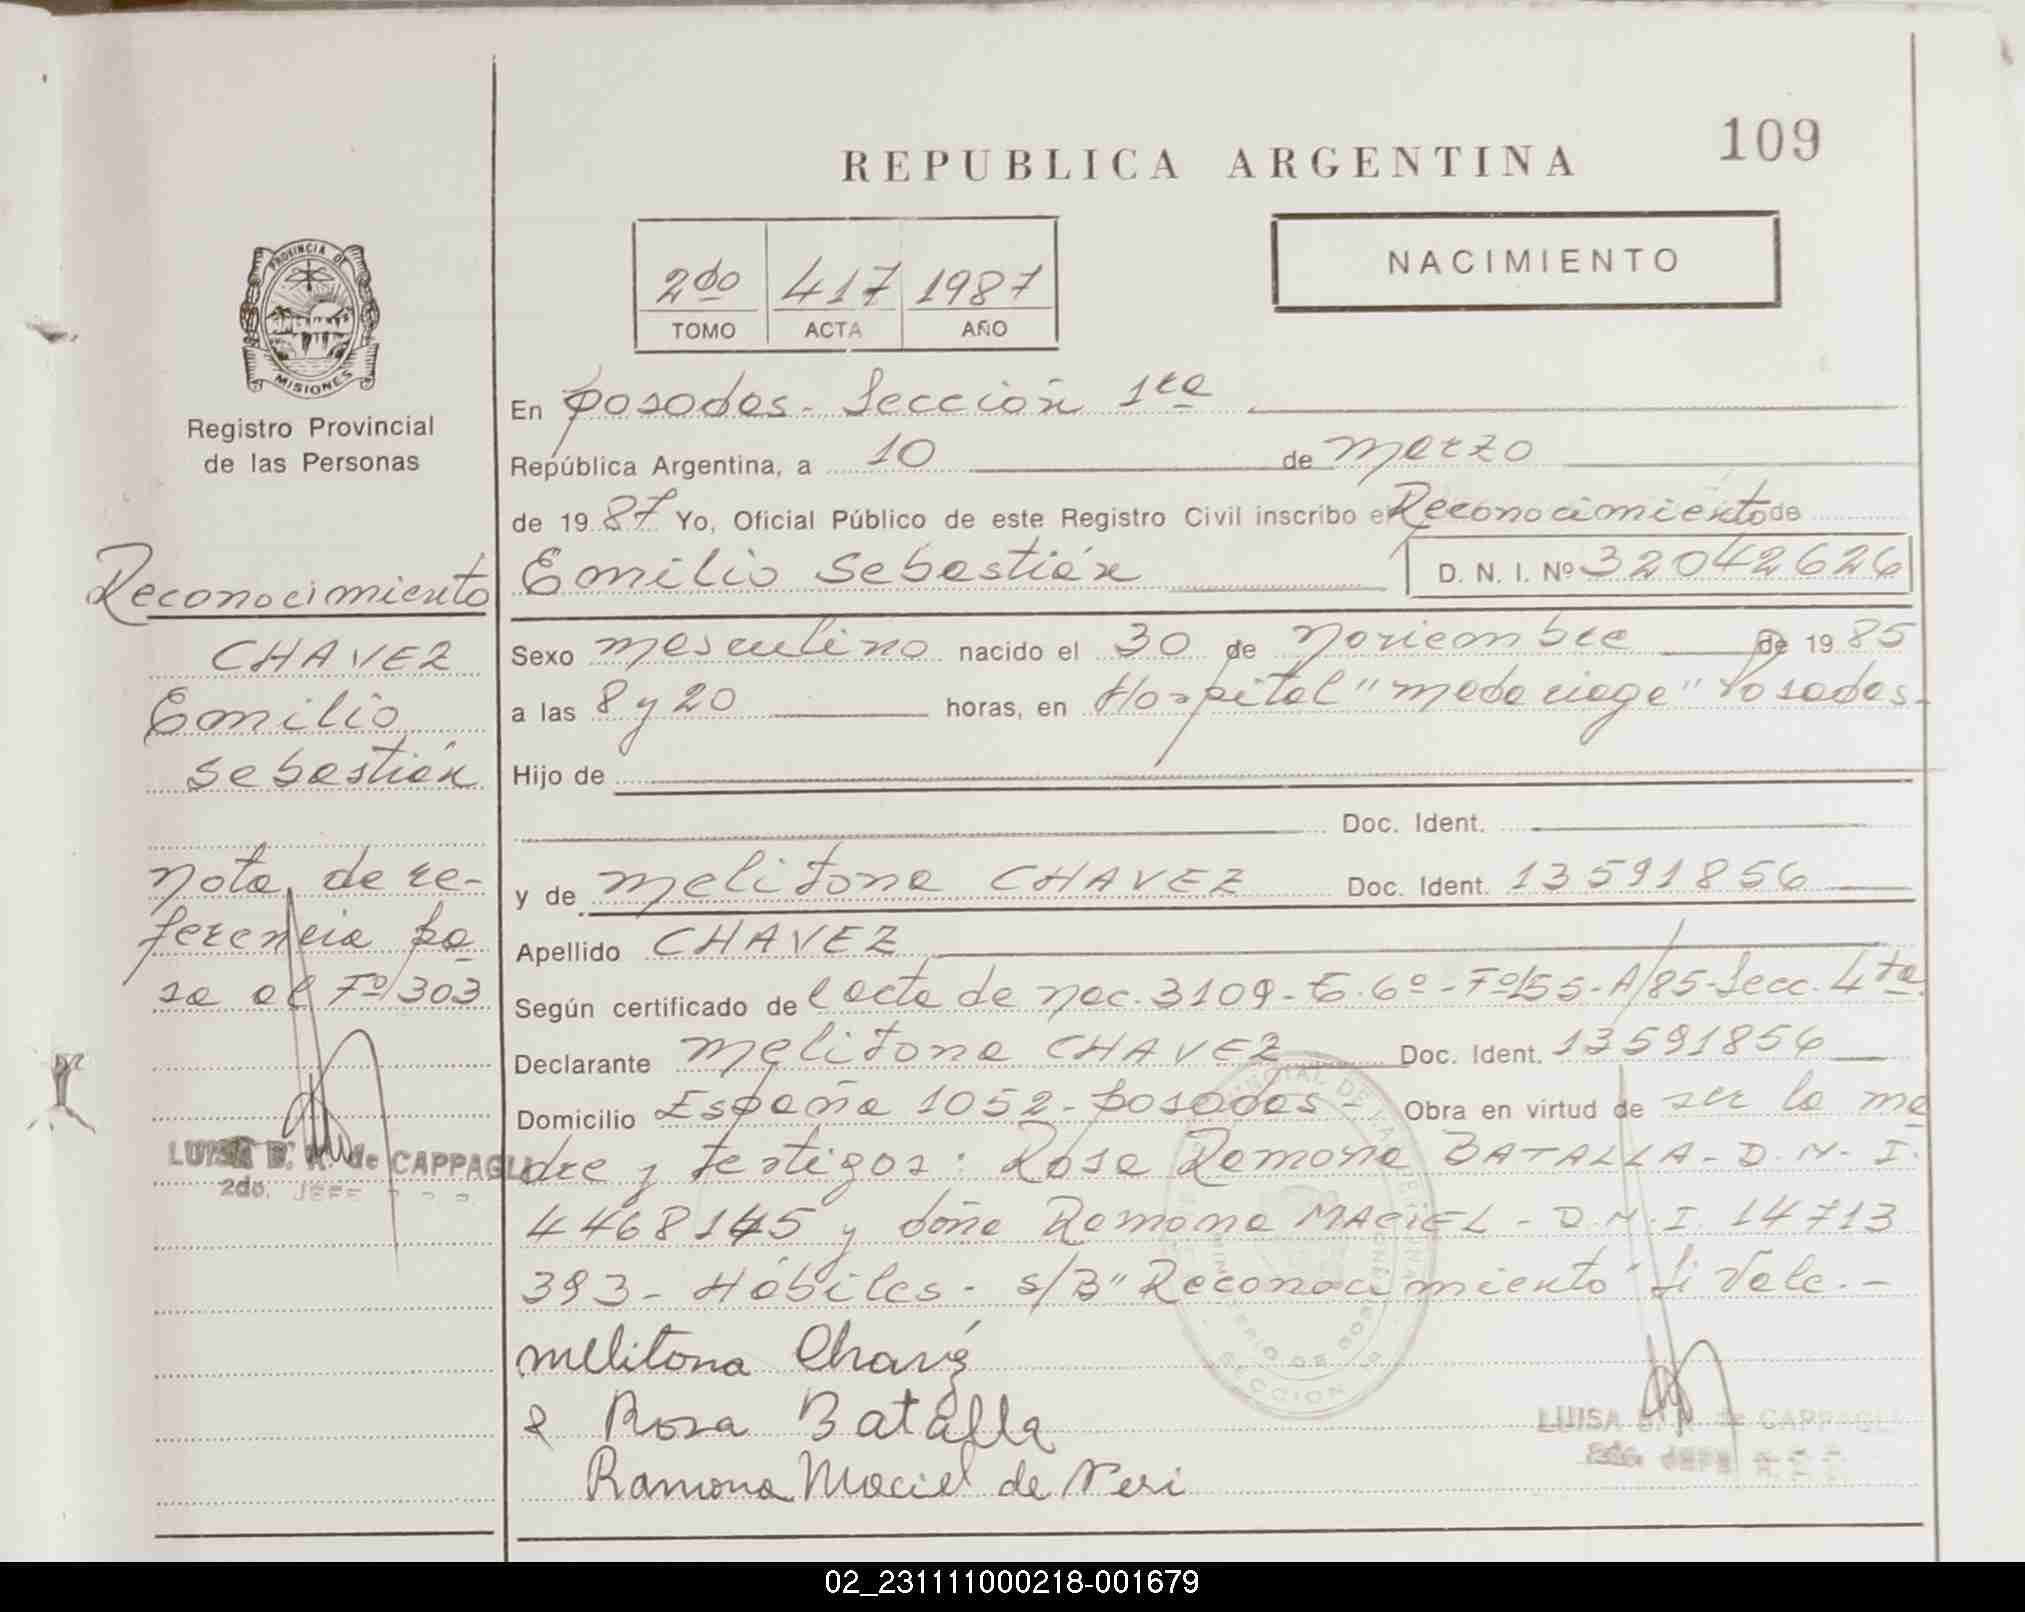 109
REPUBLICA ARGENTINA
NACIMIENTO
2do 417 1987
TOMO ACTA AÑO
PROVINCIA DE
MISIONES
Registro Provincial
de las Personas
Reconocimiento
CHAVEZ
Emilio
Sebastián
nota de re-
ferencia pa
sa al Fº 303
LUISA B. A. de CAPPAGLI
2do. JEFE
En Posadas - Sección 1ra
República Argentina, a 10 de Marzo
de 19 87 Yo, Oficial Público de este Registro Civil inscribo el Reconocimiento de
Emilio Sebastián D. N. I. Nº 32042626
Sexo masculino nacido el 30 de Noviembre de 19 85
a las 8 y 20 horas, en Hospital "Madariaga" Posadas-
Hijo de
Doc. Ident.
y de Melitona CHAVEZ Doc. Ident. 13591856
Apellido CHAVEZ
Según certificado de l acta de nac. 3109 - T. 6º - Fº 155 - A/85 - Secc. 4ta
Declarante Melitona CHAVEZ Doc. Ident. 13591856
Domicilio España 1052 - Posadas - Obra en virtud de ser la ma
dre y testigos: Rosa Ramona BATALLA - D.N.I.
4468145 y doña Ramona MACIEL - D.N.I. 14713
393 - Hábiles - s/B "Reconocimiento" Si Vale.-
Melitona Chavé
Rosa Batalla
Ramona Maciel de Neri
LUISA B. A. de CAPPAGLI
2do. JEFE
SECCION
02_231111000218-001679